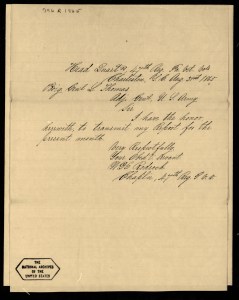 Head Quarters 47th Reg. Pa. Vet. Vols
Charleston, S.C. Aug. 31st 1865
Brig Genl L. Thomas
Adj. Genl. U.S. Army
Sir
I have the honor
herewith, to transmit my Report for the
present month.
Very Respectfully
Your Obd't Servt
Chaplin, 47th Reg. P.V.V.
THE
NATIONAL ARCHIVES
OF THE
UNITED STATES